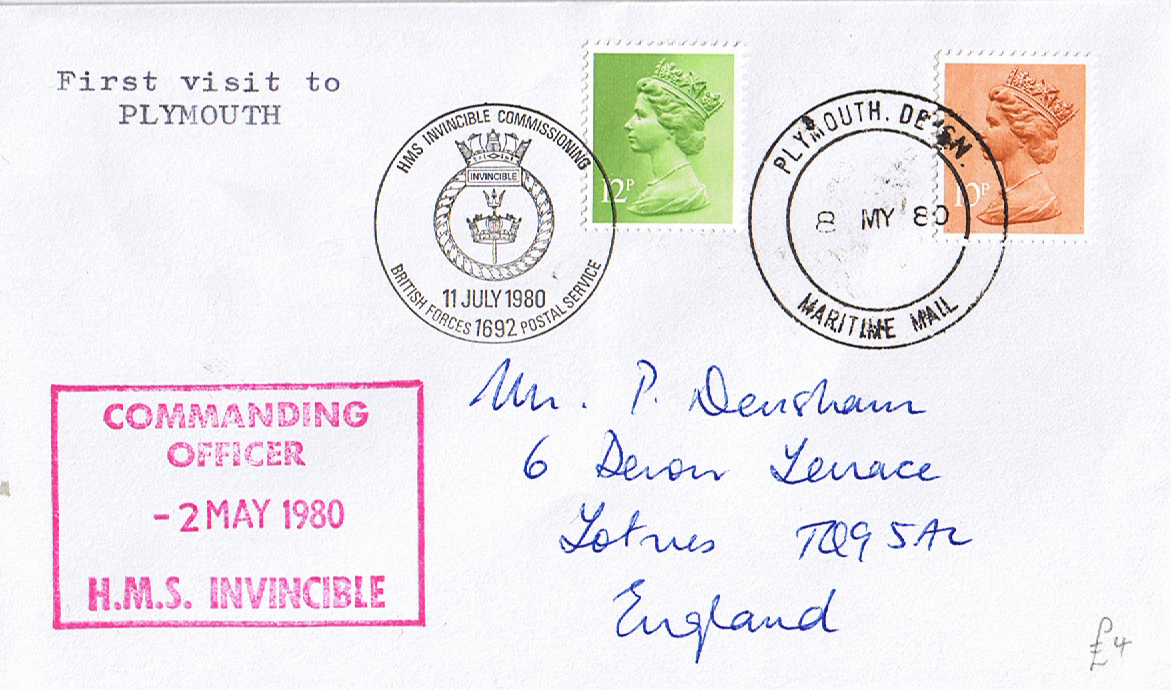 First visit to
PLYMOUTH
HMS INVINCIBLE COMMISSIONING
INVINCIBLE
11 JULY 1980
BRITISH FORCES 1692 POSTAL SERVICE
12P
PLYMOUTH. DEVON.
8 MY 80
MARITIME MAIL
10P
COMMANDING
OFFICER
-2 MAY 1980
H.M.S. INVINCIBLE
Mr. P. Densham
6 Devon Terrace
Totnes TQ9 5AZ
England
£4